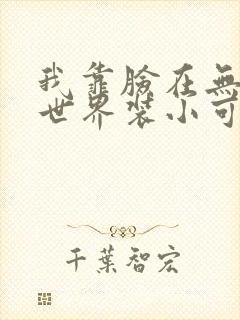 我靠臉在無
世界裝小可
千葉智宏